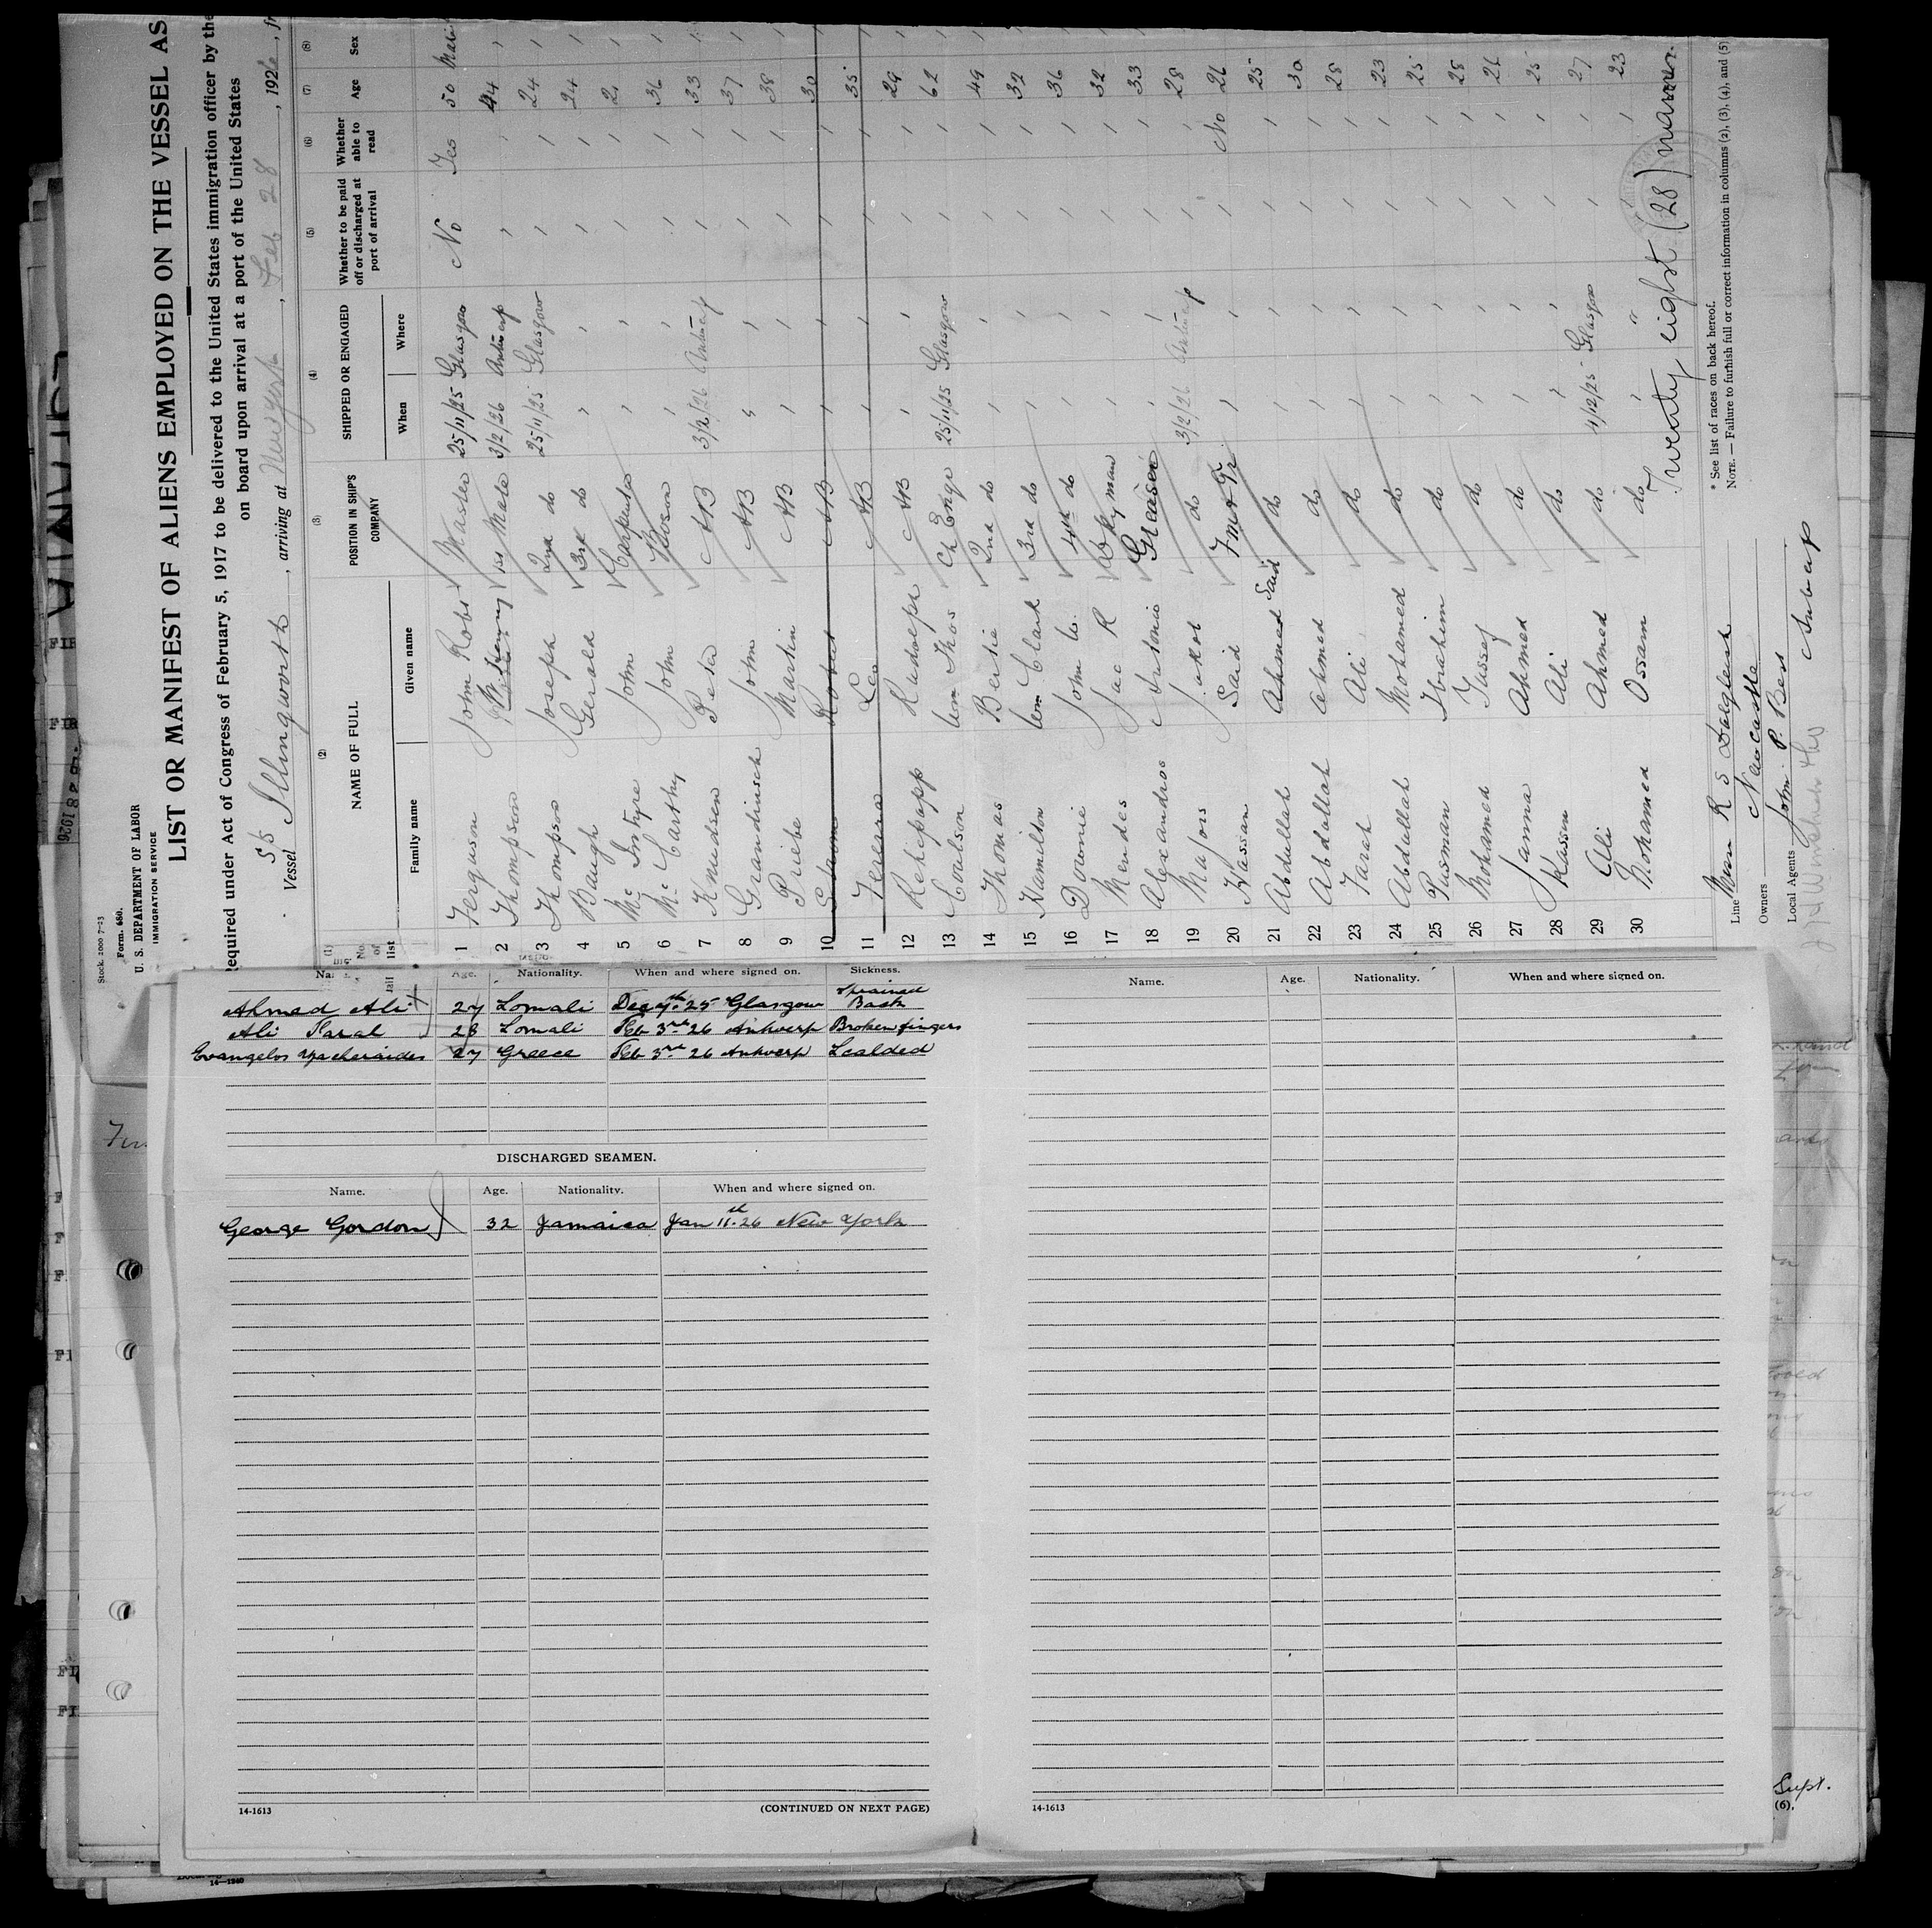 Stock. 2000 7-23
Form. 680.
U. S. DEPARTMENT OF LABOR
IMMIGRATION SERVICE
LIST OR MANIFEST OF ALIENS EMPLOYED ON THE VESSEL AS
equired under Act of Congress of February 5, 1917 to be delivered to the United States immigration officer by the
on board upon arrival at a port of the United States
Vessel SS Illingworth, arriving at New York, Feb 28, 1926, fr
(1) (2) (3) (4) (5) (6) (7) (8)
NAME OF FULL
POSITION IN SHIP'S COMPANY
SHIPPED OR ENGAGED
Whether to be paid off or discharged at port of arrival
Whether able to read
Age
Sex
No. of list
Family name
Given name
When
Where
1 Ferguson John Robt Master 25/11/25 Glasgow No Yes 50 Male
2 Thompson Henry 1st Mate 3/2/26 Antwerp 44
3 Thompson Joseph 2nd do 25/11/25 Glasgow 24
4 Baugh Gerald 3rd do 24
5 Mc Intyre John Carpenter 21
6 Mc Carthy John Boson 36
7 Knudsen Peter AB 3/2/26 Antwerp 33
8 Grandinsch John AB 37
9 Priebe Martin AB 38
10 Robert AB 30
11 Leo AB 35
12 Rehepapp Rudolph AB 29
13 Coulson Wm Thos Ch Engr 25/11/25 Glasgow 62
14 Thomas Bertie 2nd do 49
15 Hamilton Wm Clark 3rd do 32
16 Downie John W. 4th do 36
17 Mendes Jac R Dkyman 32
18 Alexandros Antonio Greaser 33
19 Majors Jakob do 3/2/26 Antwerp 28
20 Hassan Said Fm & Tr No 26
21 Abdullah Ahmed Said do 25
22 Abdallah Ahmed do 30
23 Farah Ali do 28
24 Abdullah Mohamed do 23
25 Rusman Ibrahim do 25
26 Mohamed Yussef do 28
27 Janna Ahmed do 26
28 Kassem Ali do 25
29 Ali Ahmed do 4/12/25 Glasgow 27
30 Mohamed Ossam do 23
Twenty eight (28) names
Line Mssrs R S Dalgliesh
Owners Newcastle
Local Agents John P. Best Antwerp
* See list of races on back hereof.
NOTE. — Failure to furnish full or correct information in columns (2), (3), (4), and (5)
Age. Nationality. When and where signed on. Sickness.
Ahmed Ali 27 Somali Dec 4th 25 Glasgow Sprained Back
Ali Farah 28 Somali Feb 3rd 26 Antwerp Broken fingers
Evangelos 27 Greece Feb 3rd 26 Antwerp Scalded
DISCHARGED SEAMEN.
Name. Age. Nationality. When and where signed on.
George Gordon 32 Jamaica Jan 11th 26 New York
14-1613
(CONTINUED ON NEXT PAGE)
Name. Age. Nationality. When and where signed on.
14-1613
Supt.
(6).